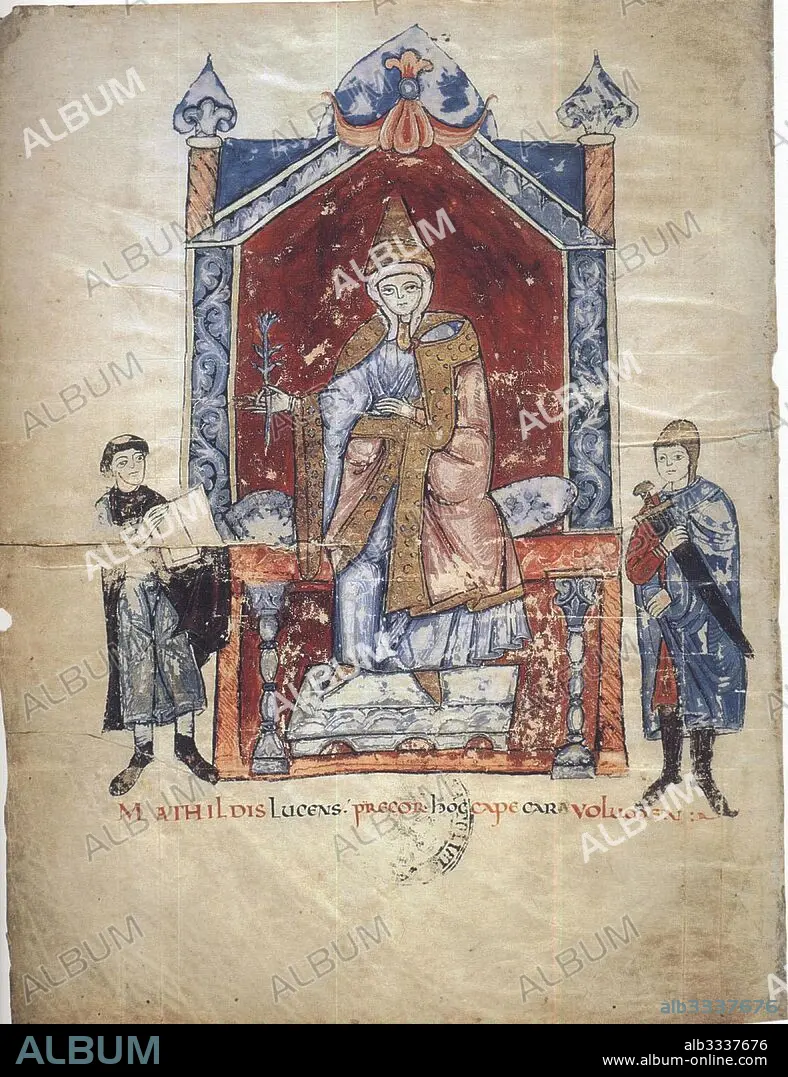 MATHILDIS LUCENS: PRECOR HOC CAPE CARA VOLUMEN
alb3337676
ALBUM
alb3337676
www.album-online.com